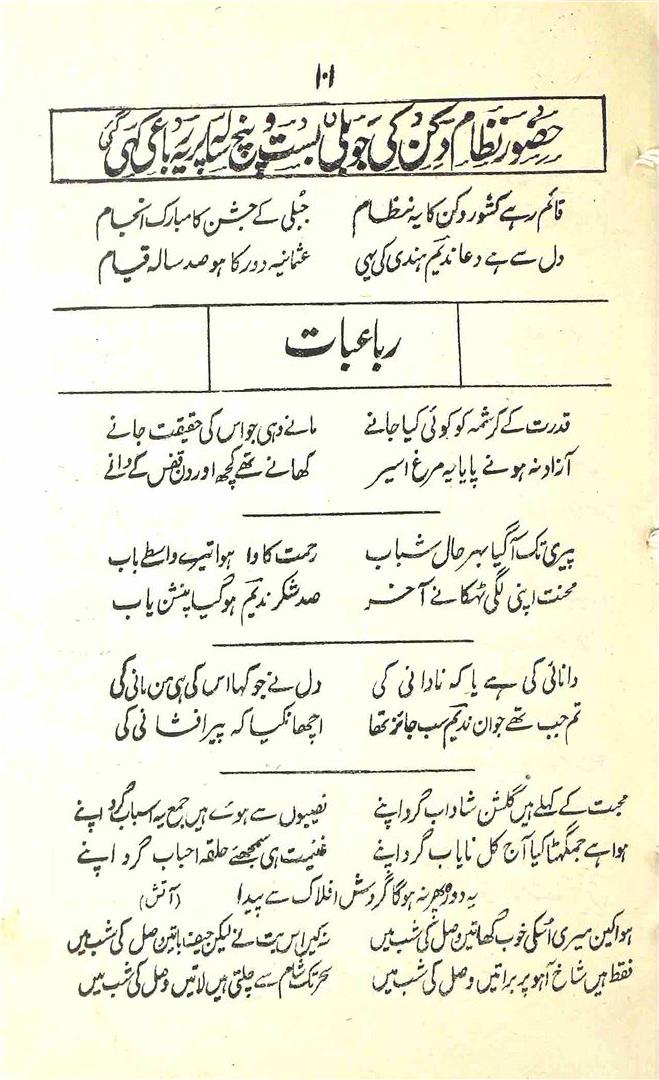 ۱۰۱
حضور نظام دکن کی جوبلی بست و پنج سالہ پر یہ رباعی کہی گئی
قائم رہے کشور دکن کا یہ نظام جبلی کے جشن کا مبارک انجام
دل سے ہے دعا ندیم ہندی کی یہی عثمانیہ دور کا ہو صد سالہ قیام
رباعیات
قدرت کے کرشمہ کو کوئی کیا جانے مانے وہی جو اس کی حقیقت جانے
آزاد نہ ہونے پایا یہ مرغ اسیر کھانے تھے کچھ اور دن قفس کے دانے
پیری تک آ گیا بہر حال شباب رحمت کا وا ہوا تیرے واسطے باب
محنت اپنی لگی ٹھکانے آخر صد شکر ندیم ہو گیا پنشن یاب
دانائی کی ہے یا کہ نادانی کی دل نے جو کہا اس کی ہی من مانی کی
تم جب تھے جوان ندیم سب جائز تھا اچھا نکیا کہ پیر افشانی کی
محبت کے کہلے ہیں گلشن شاداب گرد اپنے نصیبوں سے ہوئے ہیں جمع یہ اسباب گرد اپنے
ہوا ہے جمگھٹا کیا آج کل نایاب گرد اپنے غنیمت ہی سمجھئے حلقہ احباب گرد اپنے
یہ دور پھر نہ ہوگا گردش افلاک سے پیدا (آتش)
ہوا کین میری اسکی خوب گھاتین وصل کی شب میں نہ کیں اس بت نے لیکن حیف باتین وصل کی شب میں
فقط ہیں شاخ آہو پر براتیں وصل کی شب میں سحر تک شام سے چلتی ہیں لاتیں وصل کی شب میں